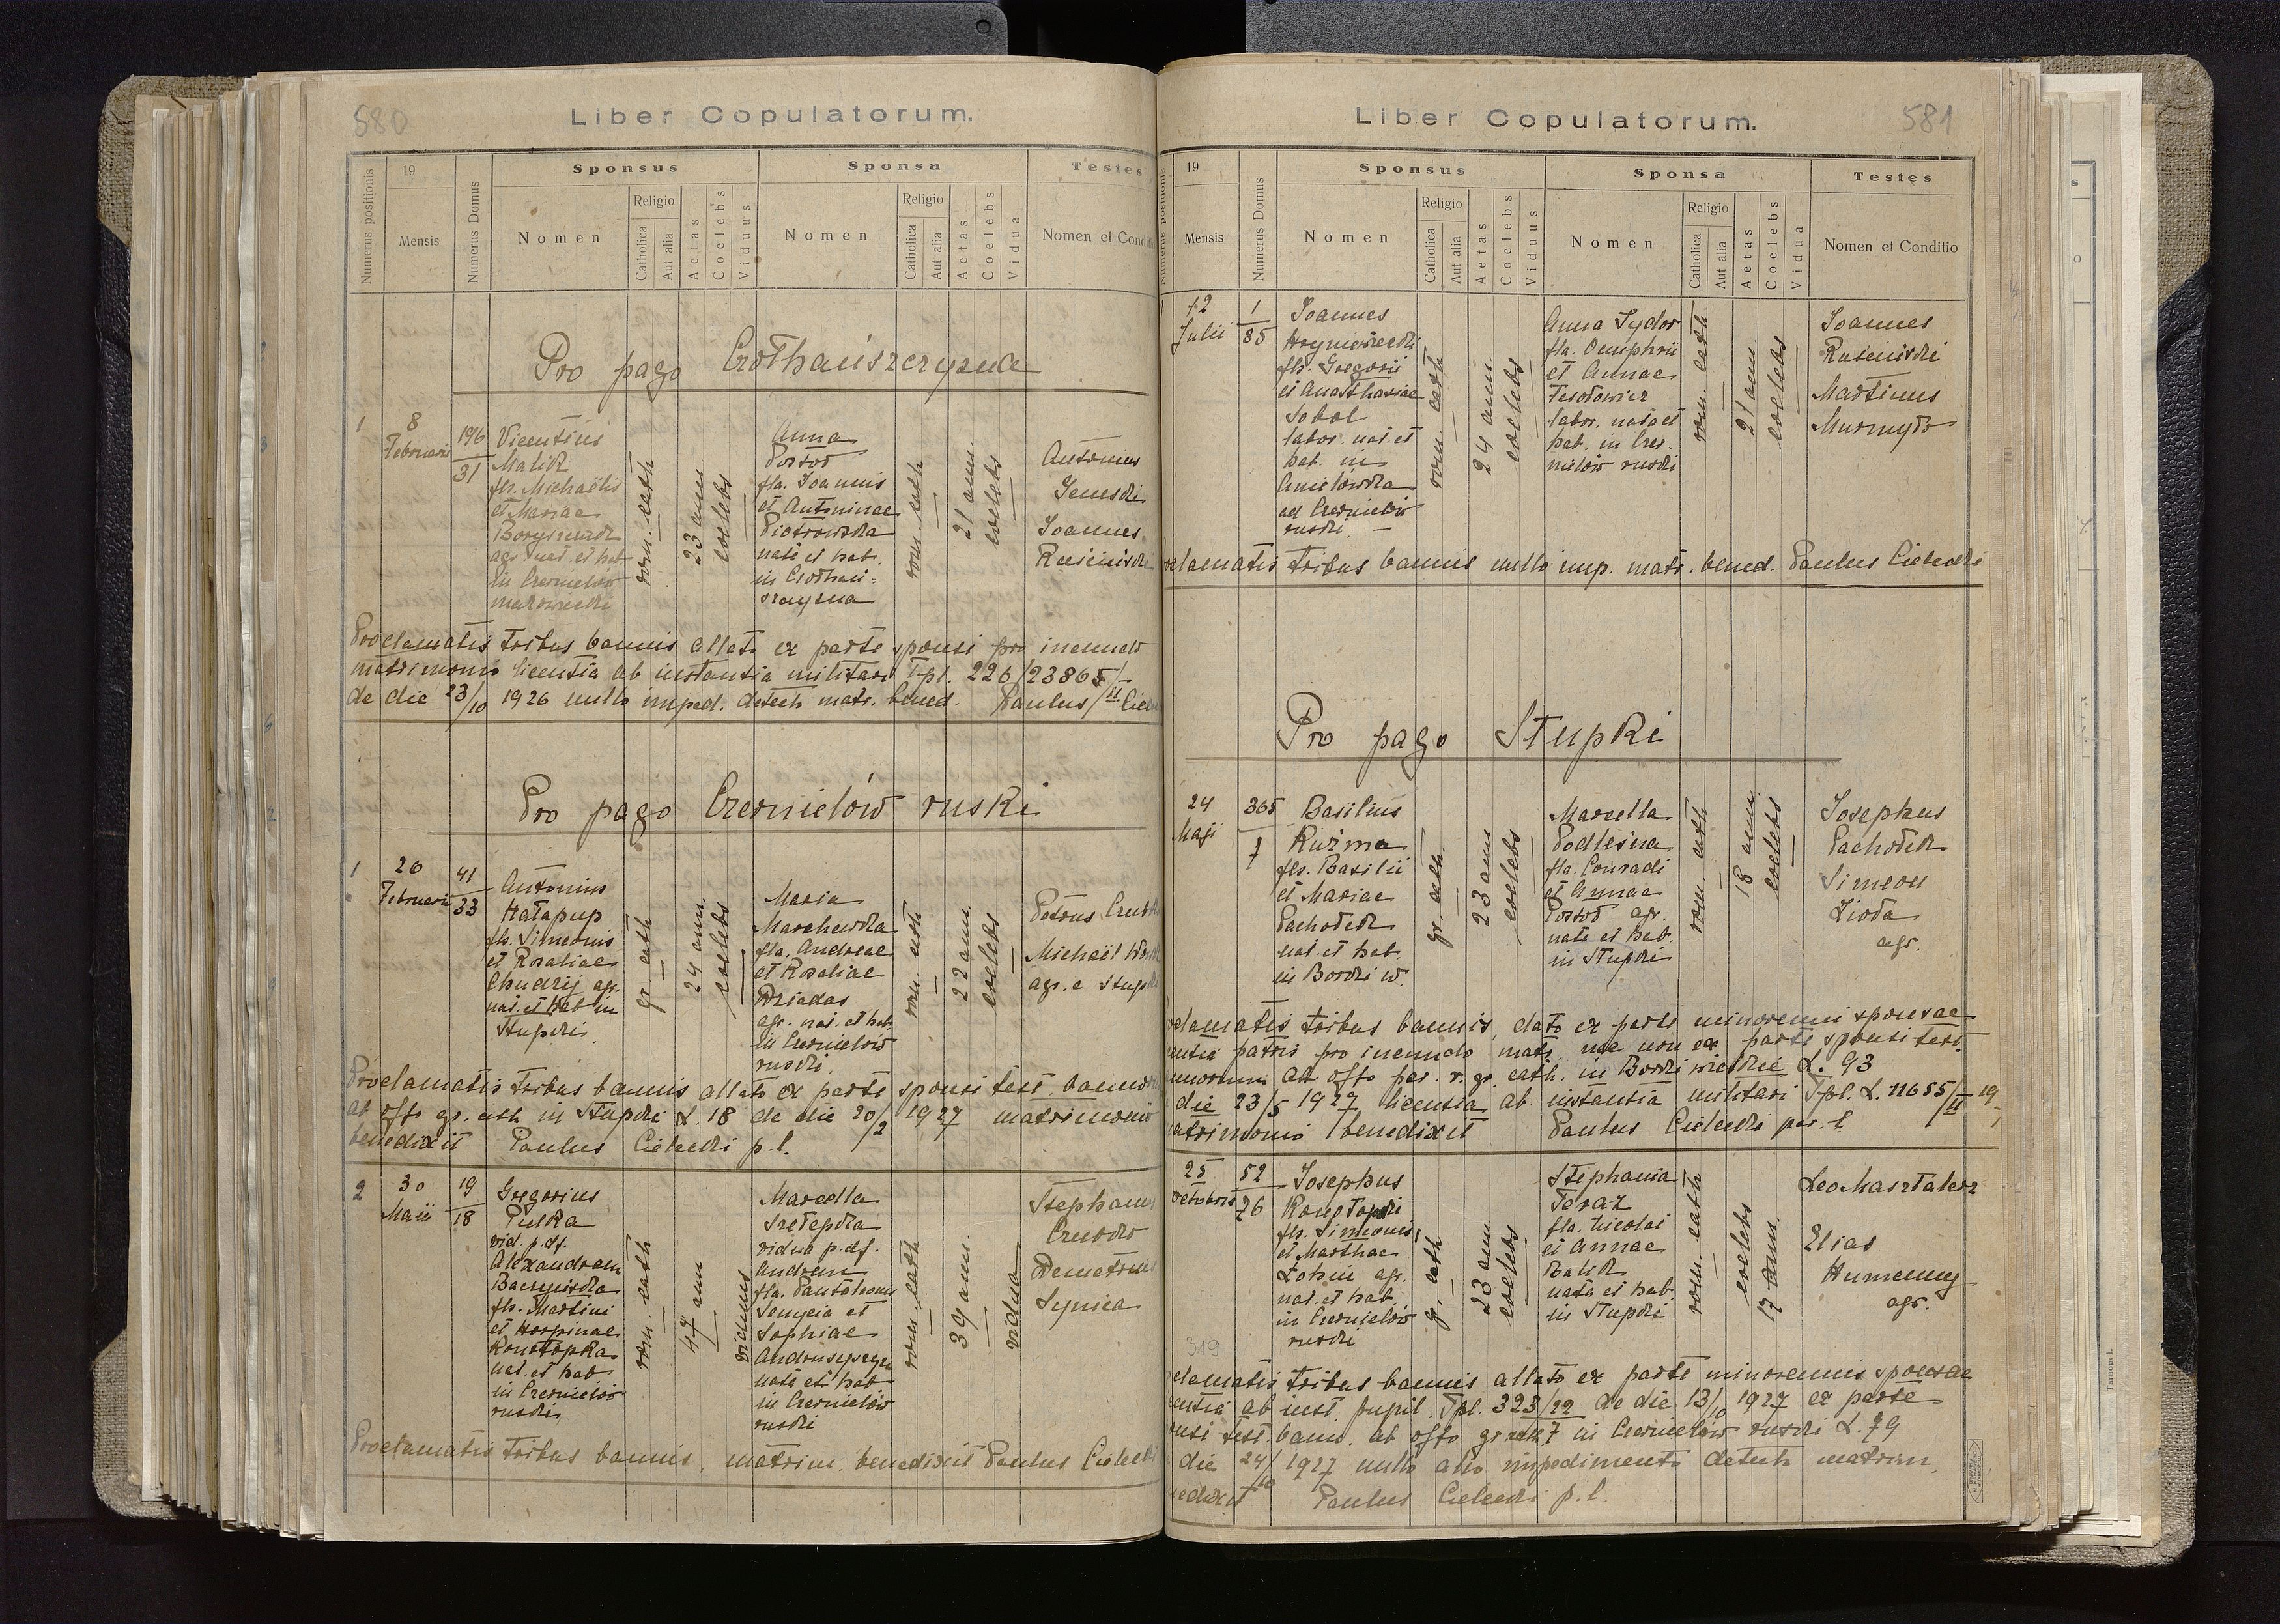 580
Liber Copulatorum.
Numerus positionis
19
Mensis
Numerus Domus
Sponsus
Nomen
Religio
Catholica
Aut alia
Aetas
Coelebs
Viduus
Sponsa
Nomen
Religio
Catholica
Aut alia
Aetas
Coelebs
Vidua
Testes
Nomen et Condi
Pro pago
1
8
Februarii
196
31
Vicentius
Malik
fls. Michaëlis
et Mariae
agr. nat. et hab.
in Czernielów
mazowiecki
rom. cath
23 ann.
coelebs
Anna
fla. Joannis
et Antoninae
Piotrowska
nata et hab.
in
rom. cath
21 ann.
coelebs
Antonius
Joannes
Proclamatis tribus bannis allata ex parte sponsi pro ineundo
matrimonio licentia ab instantia militari Tpl. 226/23865/
de die 23/10 1926 nullo imped. detecto matr. bened. Paulus
Pro pago Czernielów ruski
1
26
Februarii
41
33
Antonius
Hałapup
fls. Simeonis
et Rosaliae
Chudzij agr.
nat. et hab in
Stupki.
gr. cath
24 ann.
coelebs
Maria
Marchewka
fla. Andreae
et Rosaliae
Dziadas
agr. nat. et hab.
in Czernielów
ruski.
rom. cath
22 ann.
coelebs
Petrus
Michaël
agr. e Stupki
Proclamatis tribus bannis allato ex parte sponsi test. bannorum
ab offo gr. cath in Stupki L. 18 de die 20/2 1927 matrimonio
benedixit Paulus Cielecki p.l.
2
30
Maii
19
18
Gregorius
Pulka
vid. p. df.
Alexandram
fls. Martini
et Horpinae
Konotopka
nat. et hab
in Czernielów
ruski
rom. cath
47 ann
viduus
Marcella
vidua p. df.
Andream
fla.
et
Sophiae
nata et hab
in Czernielów
ruski
rom. cath
39 ann.
vidua
Stephanus
Demetrius
Proclamatis tribus bannis, matrim. benedixit Paulus
581
Liber Copulatorum.
Numerus positionis
19
Mensis
Numerus Domus
Sponsus
Nomen
Religio
Catholica
Aut alia
Aetas
Coelebs
Viduus
Sponsa
Nomen
Religio
Catholica
Aut alia
Aetas
Coelebs
Vidua
Testes
Nomen et Conditio
12
Julii
1
85
Joannes
fls. Gregorii
et Anasthasiae
Sobol
labor. nat. et
hab. in
Anielówka
ad Czernielów
ruski.
rom. cath
24 ann.
coelebs
Anna Sydor
fla. Onuphrii
et Annae
Fesdorowicz
labor. nata et
hab. in Czer-
nielów ruski
rom. cath
21 ann.
coelebs
Joannes
Martinus
Murmyło
clamatis tribus bannis nullo imp. matr. bened. Paulus Cielecki
Pro pago Stupki
24
Maji
365
7
Basilius
Kuźma
fls. Basilii
et Mariae
Pachołek
nat. et hab.
in Borki w.
gr. cath.
23 ann
coelebs
Marcella
Podlesna
fla. Conradi
et Annae
agr.
nata et hab.
in Stupki
rom. cath
18 ann.
coelebs
Josephus
Pachołek
Simeon
agr.
clamatis tribus bannis, dato ex parte minorenni sponsae
entia patris pro ineundo matr. nec non ex parte sponsi test.
ab offo par. r. gr. cath. in Borki wielkie L. 93
die 23/5 1927 licentia ab instantia militari Tpl. L. 11655/II 19
atrimonio benedixit Paulus Cielecki par. l.
25
octobris
52
76
Josephus
fls. Simeonis
et Marthae
agr.
nat. et hab.
in Czernielów
ruski
gr. cath
23 ann
coelebs
Stephania
Teraz
fla. Nicolai
et Annae
Balik
nata et hab
in Stupki
rom. cath
coelebs
17 ann.
Leo Masztalerz
Elias
Humenny
agr.
319
clamatis tribus bannis allato ex parte minorennis sponsae
entia ab inst. pupil. Tpl. 323/22 de die 13/10 1927 ex parte
onsi test. bann. ab offo gr cath in Czernielów ruski L. 79
die 24/10 1927 nullo alio impedimento detecto matrim.
nedixit Paulus Cielecki p. l.
Tarnopol.